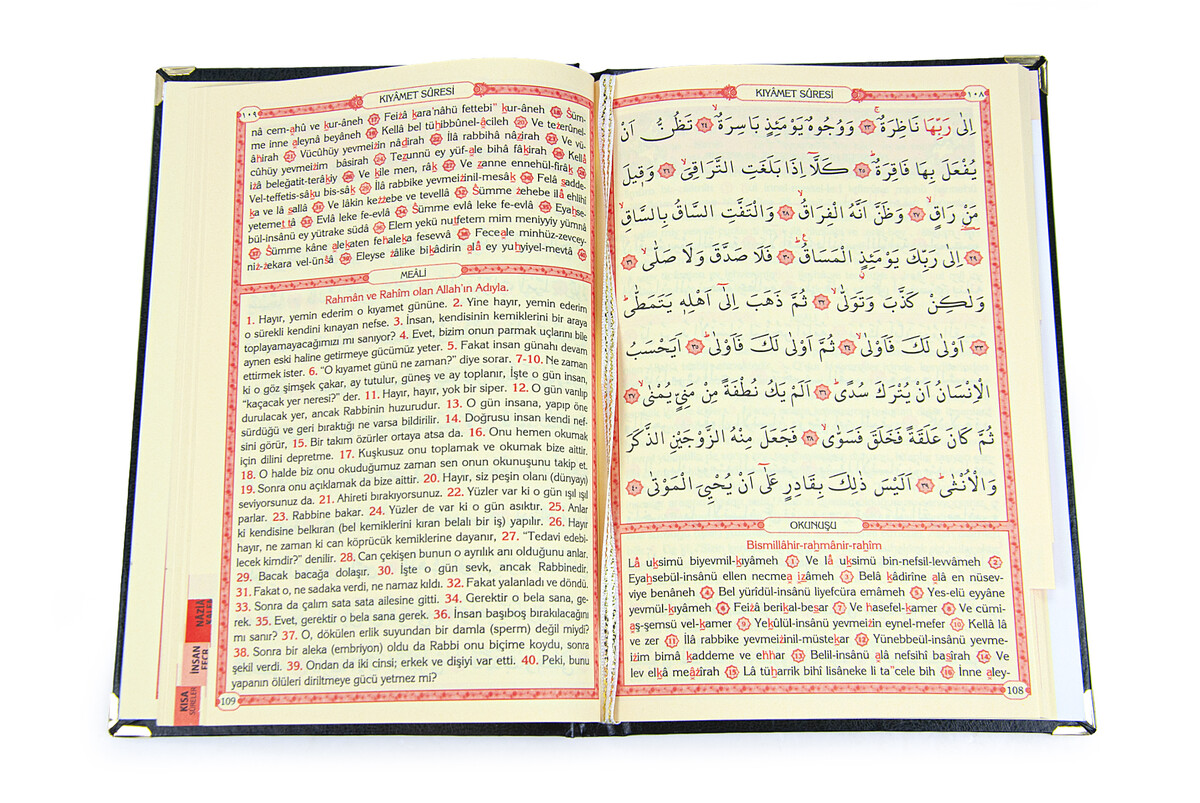 KIYÂMET SÛRESİ
١٠٨
اِلٰى رَبِّهَا نَاظِرَةٌۚ ﴿٢٣﴾ وَوُجُوهٌ يَوْمَئِذٍ بَاسِرَةٌۙ ﴿٢٤﴾ تَظُنُّ اَنْ
يُفْعَلَ بِهَا فَاقِرَةٌؕ ﴿٢٥﴾ كَلَّٓا اِذَا بَلَغَتِ التَّرَاقِيَۙ ﴿٢٦﴾ وَقٖيلَ
مَنْ رَاقٍۙ ﴿٢٧﴾ وَظَنَّ اَنَّهُ الْفِرَاقُۙ ﴿٢٨﴾ وَالْتَفَّتِ السَّاقُ بِالسَّاقِۙ
﴿٢٩﴾ اِلٰى رَبِّكَ يَوْمَئِذٍ الْمَسَاقُؕ ﴿٣٠﴾ فَلَا صَدَّقَ وَلَا صَلّٰىۙ ﴿٣١﴾
وَلٰكِنْ كَذَّبَ وَتَوَلّٰىۙ ﴿٣٢﴾ ثُمَّ ذَهَبَ اِلٰٓى اَهْلِهٖ يَتَمَطّٰىؕ
﴿٣٣﴾ اَوْلٰى لَكَ فَاَوْلٰىۙ ﴿٣٤﴾ ثُمَّ اَوْلٰى لَكَ فَاَوْلٰىؕ ﴿٣٥﴾ اَيَحْسَبُ
الْاِنْسَانُ اَنْ يُتْرَكَ سُدًىؕ ﴿٣٦﴾ اَلَمْ يَكُ نُطْفَةً مِنْ مَنِيٍّ يُمْنٰىۙ ﴿٣٧﴾
ثُمَّ كَانَ عَلَقَةً فَخَلَقَ فَسَوّٰىۙ ﴿٣٨﴾ فَجَعَلَ مِنْهُ الزَّوْجَيْنِ الذَّكَرَ
وَالْاُنْثٰىؕ ﴿٣٩﴾ اَلَيْسَ ذٰلِكَ بِقَادِرٍ عَلٰٓى اَنْ يُحْيِيَ الْمَوْتٰى ﴿٤٠﴾
OKUNUŞU
Bismillâhir-rahmânir-rahîm
Lâ uksimü biyevmil-kıyâmeh 1 Ve lâ uksimü bin-nefsil-levvâmeh 2
Eyahsebül-insânü ellen necmea izâmeh 3 Belâ kâdirîne alâ en nüsev-
viye benâneh 4 Bel yürîdül-insânü liyefcüra emâmeh 5 Yes-elü eyyâne
yevmül-kıyâmeh 6 Feizâ berikal-besar 7 Ve hasefel-kamer 8 Ve cümi-
aş-şemsü vel-kamer 9 Yekûlül-insânü yevmeizin eynel-mefer 10 Kellâ lâ
ve zer 11 İlâ rabbike yevmeizinil-müstekar 12 Yünebbeül-insânü yevme-
izim bimâ kaddeme ve ehhar 13 Belil-insânü alâ nefsihî basîrah 14 Ve
lev elkâ meâzîrah 15 Lâ tüharrik bihî lisâneke li ta"cele bih 16 İnne aley-
108
KIYÂMET SÛRESİ
١٠٩
nâ cem-ahû ve kur-âneh 17 Feizâ kara'nâhü fettebi" kur-âneh 18 Süm-
me inne aleynâ beyâneh 19 Kellâ bel tühibbûnel-âcileh 20 Ve tezerûnel-
âhirah 21 Vücûhüy yevmeizin nâdirah 22 İlâ rabbihâ nâzirah 23 Ve vü-
cûhüy yevmeizim bâsirah 24 Tezunnü ey yüf-ale bihâ fâkirah 25 Kellâ
izâ beleğatit-terâkiy 26 Ve kîle men, râk 27 Ve zanne ennehül-firâk 28
Vel-teffetis-sâku bis-sâk 29 İlâ rabbike yevmeizinil-mesâk 30 Felâ sadde-
ka ve lâ sallâ 31 Ve lâkin kezzebe ve tevellâ 32 Sümme zehebe ilâ ehlihî
yetemettâ 33 Evlâ leke fe-evlâ 34 Sümme evlâ leke fe-evlâ 35 Eyahse-
bül-insânü ey yütrake südâ 36 Elem yekü nutfetem mim meniyyiy yümnâ
37 Sümme kâne alekaten fehaleka fesevvâ 38 Feceale minhüz-zevcey-
niz-zekara vel-ünsâ 39 Eleyse zâlike bikâdirin alâ ey yuhyiyel-mevtâ 40
MEÂLİ
Rahmân ve Rahîm olan Allah'ın Adıyla.
1. Hayır, yemin ederim o kıyamet gününe. 2. Yine hayır, yemin ederim
o sürekli kendini kınayan nefse. 3. İnsan, kendisinin kemiklerini bir araya
toplayamayacağımızı mı sanıyor? 4. Evet, bizim onun parmak uçlarını bile
aynen eski haline getirmeye gücümüz yeter. 5. Fakat insan günahı devam
ettirmek ister. 6. "O kıyamet günü ne zaman?" diye sorar. 7-10. Ne zaman
ki o göz şimşek çakar, ay tutulur, güneş ve ay toplanır, İşte o gün insan,
"kaçacak yer neresi?" der. 11. Hayır, hayır, yok bir siper. 12. O gün varılıp
durulacak yer, ancak Rabbinin huzurudur. 13. O gün insana, yapıp öne
sürdüğü ve geri bıraktığı ne varsa bildirilir. 14. Doğrusu insan kendi nef-
sini görür, 15. Bir takım özürler ortaya atsa da. 16. Onu hemen okumak
için dilini depretme. 17. Kuşkusuz onu toplamak ve okumak bize aittir.
18. O halde biz onu okuduğumuz zaman sen onun okunuşunu takip et.
19. Sonra onu açıklamak da bize aittir. 20. Hayır, siz peşin olanı (dünyayı)
seviyorsunuz da. 21. Ahireti bırakıyorsunuz. 22. Yüzler var ki o gün ışıl ışıl
parlar. 23. Rabbine bakar. 24. Yüzler de var ki o gün asıktır. 25. Anlar
ki kendisine belkıran (bel kemiklerini kıran belalı bir iş) yapılır. 26. Hayır
hayır, ne zaman ki can köprücük kemiklerine dayanır, 27. "Tedavi edebi-
lecek kimdir?" denilir. 28. Can çekişen bunun o ayrılık anı olduğunu anlar.
29. Bacak bacağa dolaşır. 30. İşte o gün sevk, ancak Rabbinedir.
31. Fakat o, ne sadaka verdi, ne namaz kıldı. 32. Fakat yalanladı ve döndü.
33. Sonra da çalım sata sata ailesine gitti. 34. Gerektir o bela sana, ge-
rek. 35. Evet, gerektir o bela sana gerek. 36. İnsan başıboş bırakılacağını
mı sanır? 37. O, dökülen erlik suyundan bir damla (sperm) değil miydi?
38. Sonra bir aleka (embriyo) oldu da Rabbi onu biçime koydu, sonra
şekil verdi. 39. Ondan da iki cinsi; erkek ve dişiyi var etti. 40. Peki, bunu
yapanın ölüleri diriltmeye gücü yetmez mi?
109
NÂZİÂ
İNSAN
FECR
KISA
SÛRELER